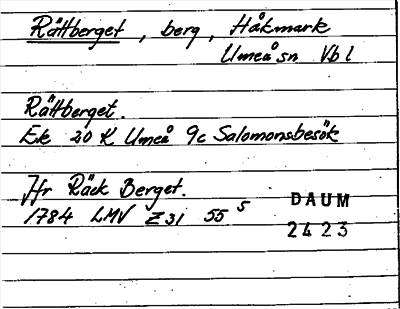 Rättberget, berg, Håkmark
Umeå sn Vb l
Rättberget.
Ek 20 K Umeå 9c Salomonsbesök
Jfr Räck Berget.
1784 LMV Z31 55 s
DAUM
2423